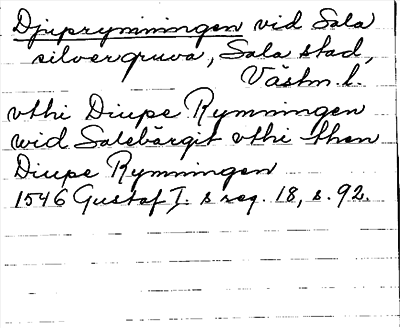 Djuprymningen vid Sala
silvergruva, Sala stad,
Västm. l.
vthi Diupe Rymningen
wid Salebärgit vthi then
Diupe Rymningen
1546 Gustaf I. s reg. 18, s. 92.